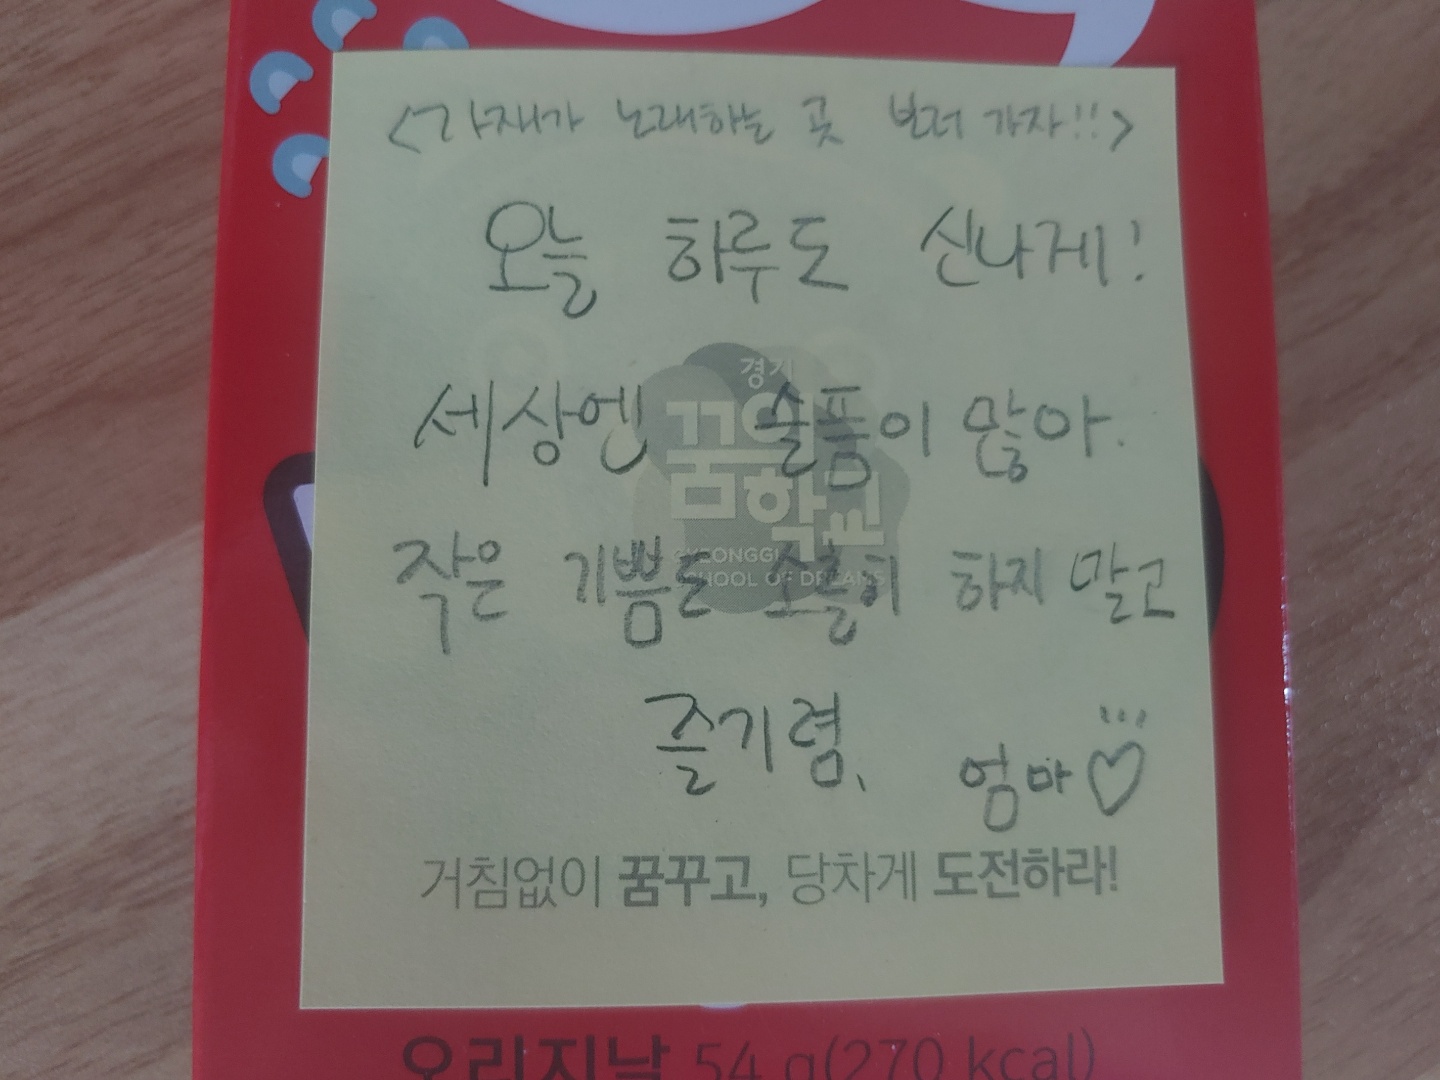 <가재가 노래하는 곳 보러 가자!!>
오늘 하루도 신나게!
경기
꿈의
세상엔 슬픔이 많아.
학교
GYEONGGI
SCHOOL OF DREAMS
작은 기쁨도 소홀히 하지 말고
즐기렴.
엄마♡
거침없이 꿈꾸고, 당차게 도전하라!
오리지날 54 g(270 kcal)